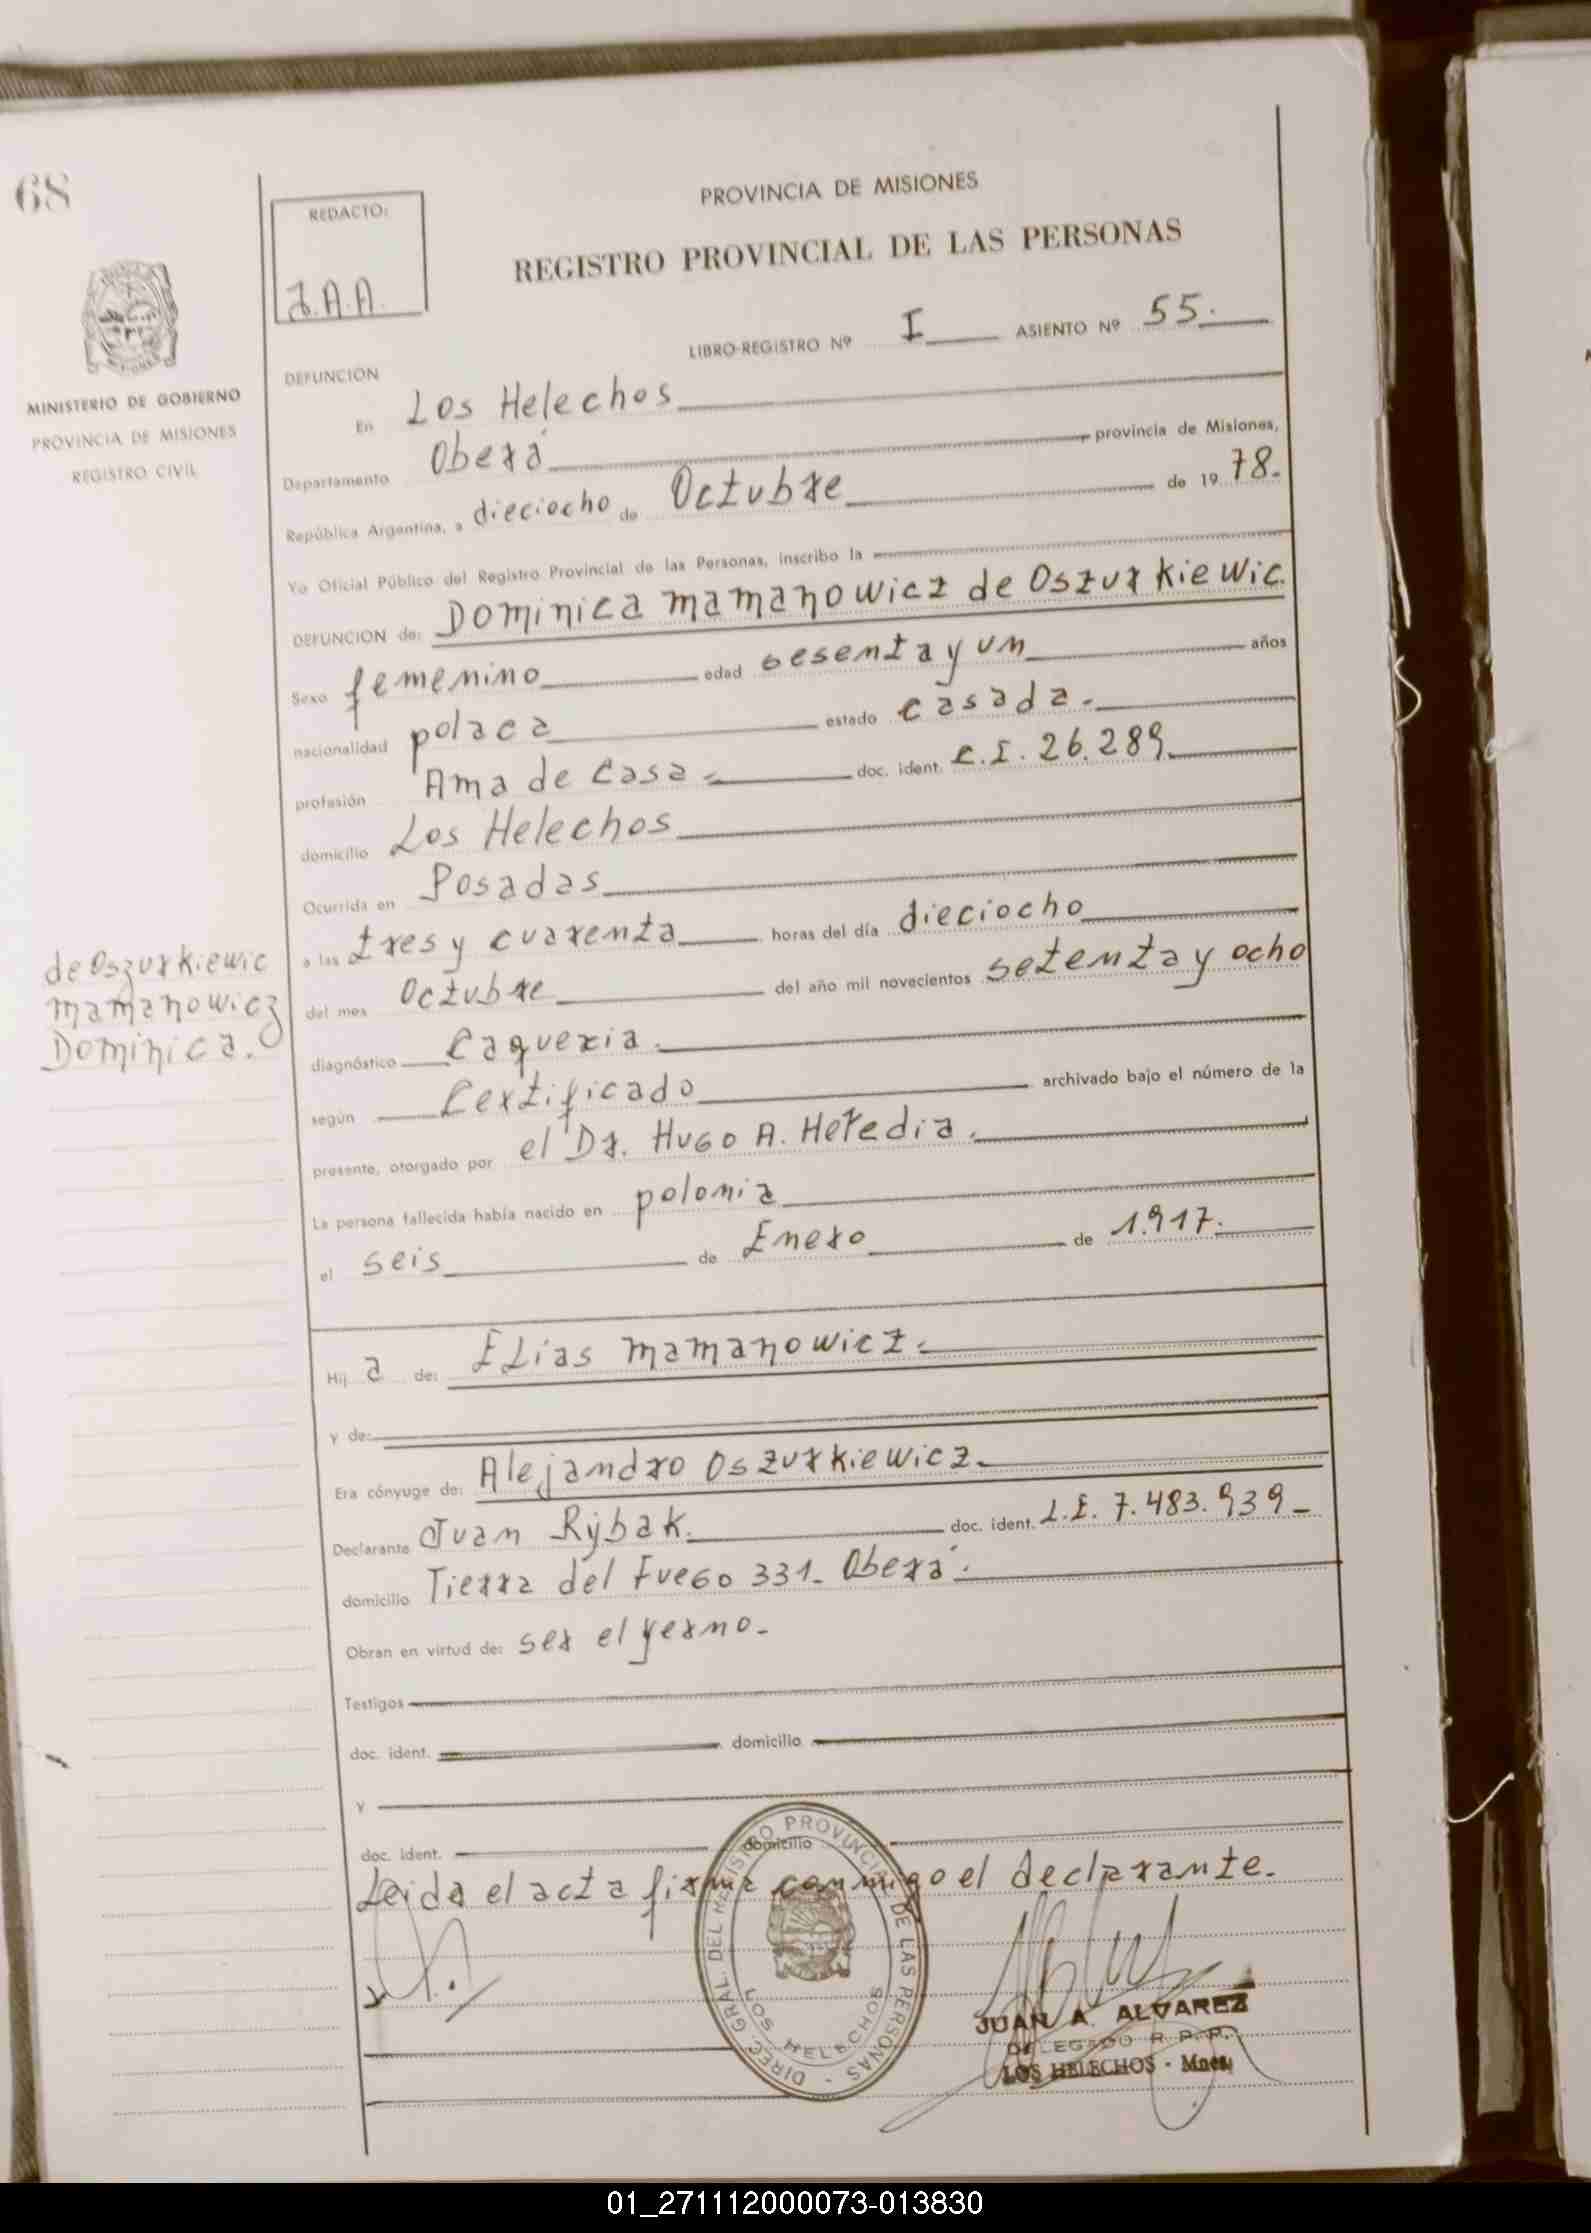 68
REDACTO:
J.A.A.
PROVINCIA DE MISIONES
REGISTRO PROVINCIAL DE LAS PERSONAS
LIBRO-REGISTRO Nº I ASIENTO Nº 55.
MINISTERIO DE GOBIERNO
PROVINCIA DE MISIONES
REGISTRO CIVIL
DEFUNCION
En Los Helechos
Departamento Oberá provincia de Misiones,
República Argentina, a dieciocho de Octubre de 1978.
Yo Oficial Público del Registro Provincial de las Personas, inscribo la
DEFUNCION de: Dominica mamanowicz de Oszurkiewic.
Sexo femenino edad sesenta y un años
nacionalidad polaca estado casada.
profesión Ama de Casa doc. ident. C.I. 26.289
domicilio Los Helechos
Ocurrida en Posadas
a las tres y cuarenta horas del día dieciocho
del mes Octubre del año mil novecientos setenta y ocho
de Oszurkiewic
mamanowicz
Dominica.
diagnóstico Caquexia.
según Certificado archivado bajo el número de la
presente, otorgado por el Dr. Hugo A. Heredia.
La persona fallecida había nacido en polonia
el seis de Enero de 1.917.
Hij a de: Elias mamanowicz.
y de:
Era cónyuge de: Alejandro Oszurkiewicz.
Declarante Juan Rybak. doc. ident. L.E. 7.483.939-
domicilio Tierra del Fuego 331- Oberá.
Obran en virtud de: ser el yerno.-
Testigos
doc. ident. domicilio
y
doc. ident. domicilio
Leida el acta firma conmigo el declarante.
DIREC. GRAL. DEL REGISTRO PROVINCIAL DE LAS PERSONAS -
LOS HELECHOS
JUAN A. ALVAREZ
DELEGADO R. P. P.
LOS HELECHOS - Mnes.
01_271112000073-013830